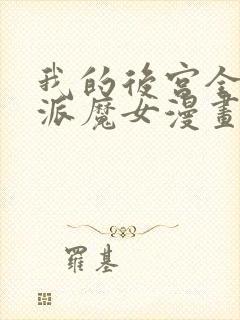 我的後宮全
派魔女漫畫
羅基